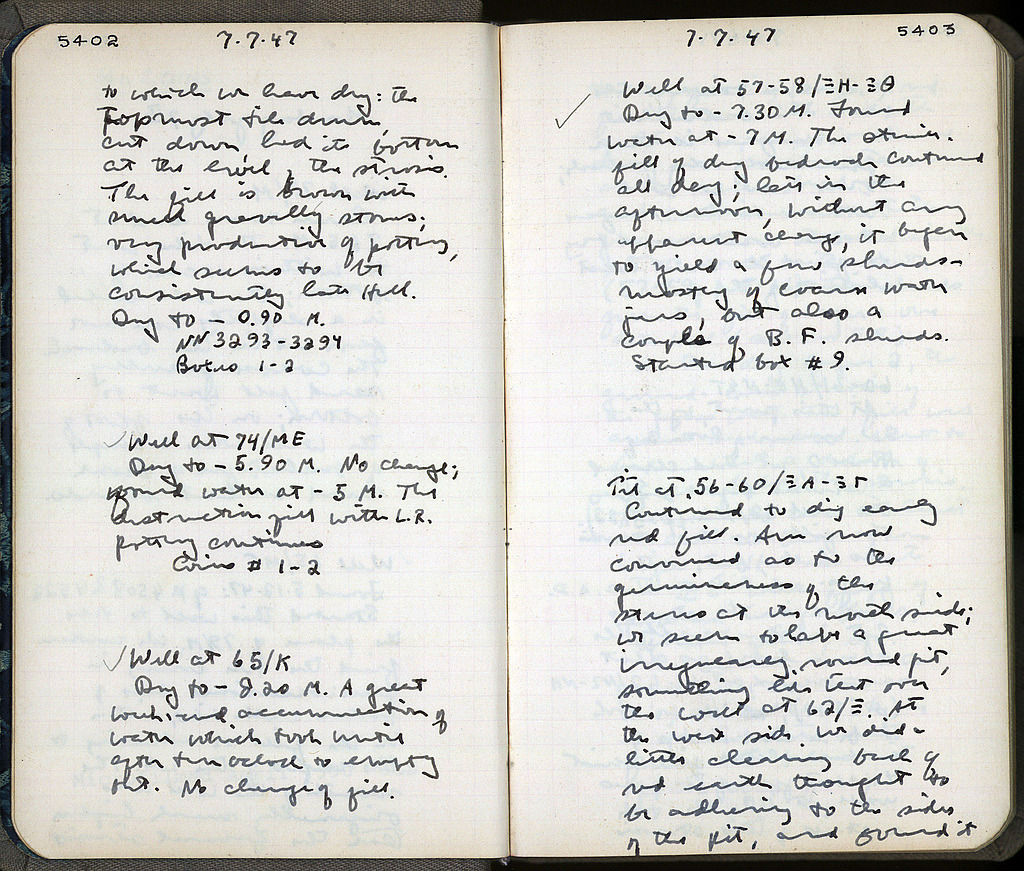 5402
7.7.47
to which we have dug: the
topmost tile drum,
cut down, had its bottom
at the level of the stereo.
The fill is brown with
small gravelly stones;
very productive of pottery,
which seems to be
consistently late Hell.
Dug to - 0.90 M.
NN 3293-3294
Boxes 1-2
✓ Well at 74/ME
Dug to - 5.90 M. No change;
found water at - 5 M. The
destruction fill with L.R.
pottery continues
Coins # 1-2
✓ Well at 65/K
Dug to - 8.20 M. A great
week-end accumulation of
water which took until
after ten oclock to empty
out. No change of fill.
7.7.47
5403
✓ Well at 57-58/ΞH-ΞΘ
Dug to - 7.30 M. Found
water at - 7 M. The
fill of dug bedrock continued
all day; late in the
afternoon, without any
apparent change, it began
to yield a few sherds -
mostly of coarse water
jars, but also a
couple of B. F. sherds.
Started box # 9.
Pit at 56-60/ΞA-ΞΓ
Continued to dig early
red fill. Am now
convinced as to the
genuineness of the
stereo at the north side;
we seem to have a great
irregularly round pit,
something like that over
the well at 62/Ξ. At
the west side we did a
little clearing back of
red earth thought to
be adhering to the sides
of the pit, and found it